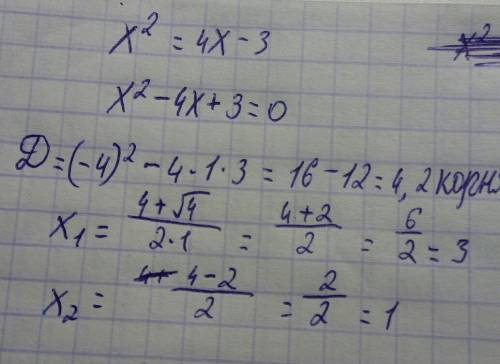 x² = 4x - 3
x² - 4x + 3 = 0
D = (-4)² - 4 · 1 · 3 = 16 - 12 = 4, 2 корня
x₁ = (4 + √4)/(2 · 1) = (4 + 2)/2 = 6/2 = 3
x₂ = (4 - 2)/2 = 2/2 = 1